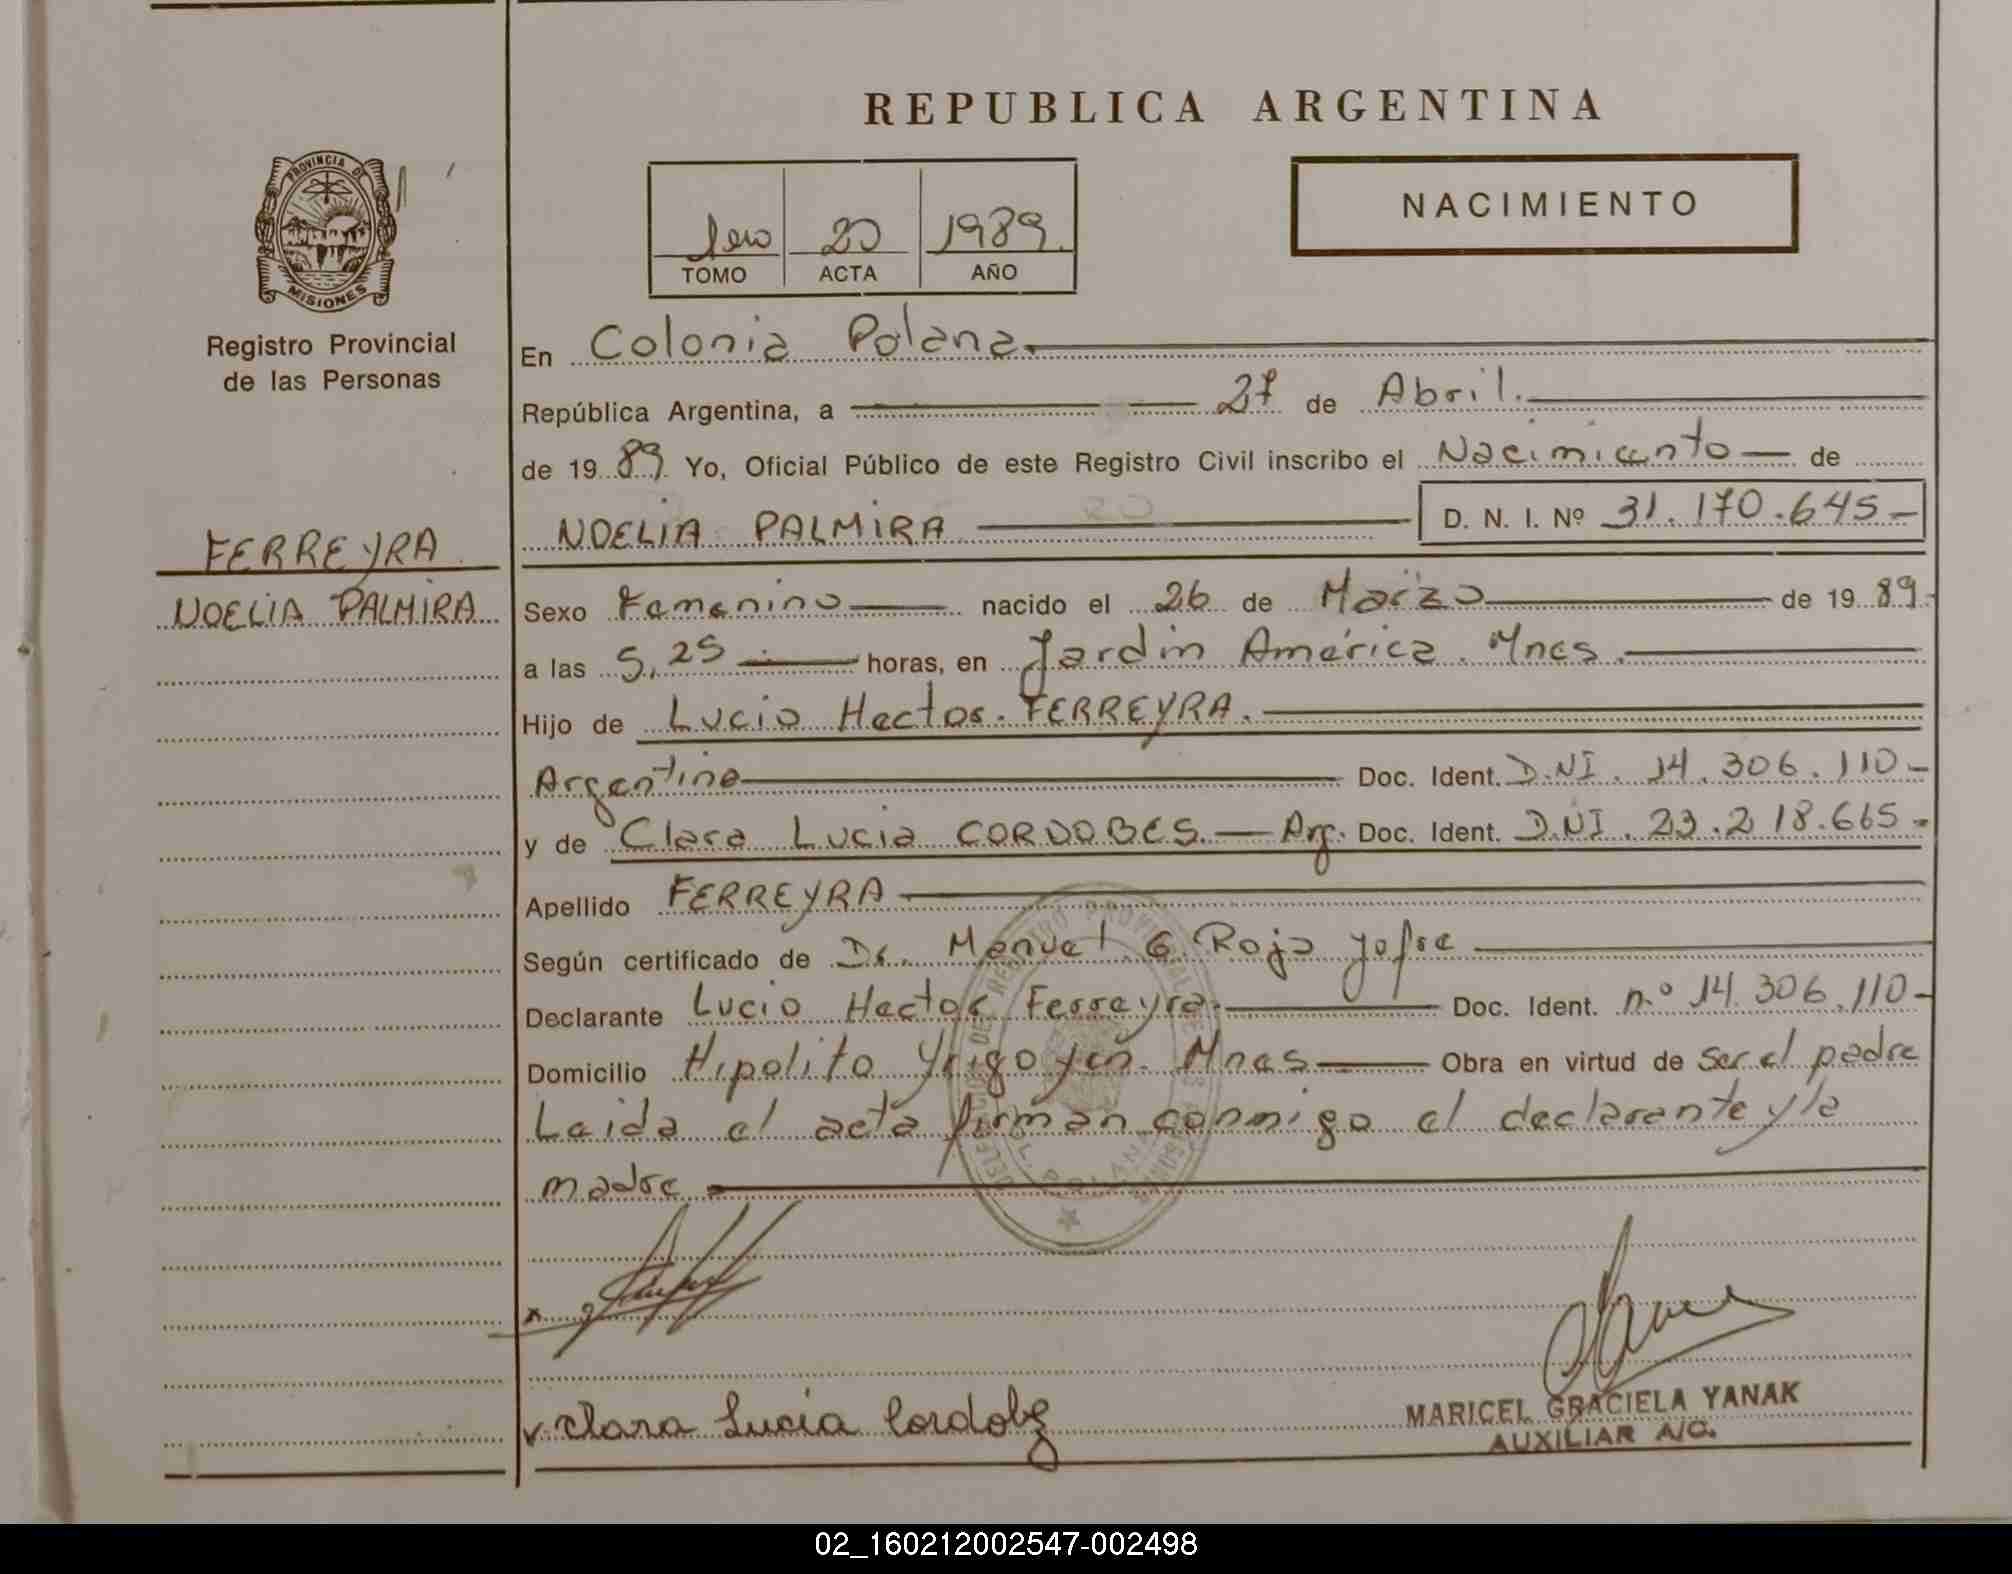 REPUBLICA ARGENTINA
PROVINCIA DE
MISIONES
Registro Provincial
de las Personas
1ero 20 1989
TOMO ACTA AÑO
NACIMIENTO
En Colonia Polana
República Argentina, a 27 de Abril.
de 1989 Yo, Oficial Público de este Registro Civil inscribo el Nacimiento de
NOELIA PALMIRA D. N. I. Nº 31.170.645
FERREYRA
NOELIA PALMIRA
Sexo Femenino nacido el 26 de Marzo de 1989
a las 5,25 horas, en Jardin América. Mnes.
Hijo de Lucio Hector FERREYRA.
Argentino Doc. Ident. D.NI. 14.306.110
y de Clara Lucia CORDOBES. Arg. Doc. Ident. D.NI. 23.218.665
Apellido FERREYRA
Según certificado de Dr. Manuel G. Roja Jofre
Declarante Lucio Hector Ferreyra Doc. Ident. n.º 14.306.110
Domicilio Hipolito Yrigoyen. Mnes Obra en virtud de ser el padre
Leida el acta firman conmigo el declarante y la
madre
Clara Lucia
MARICEL GRACIELA YANAK
AUXILIAR A/C.
02_160212002547-002498